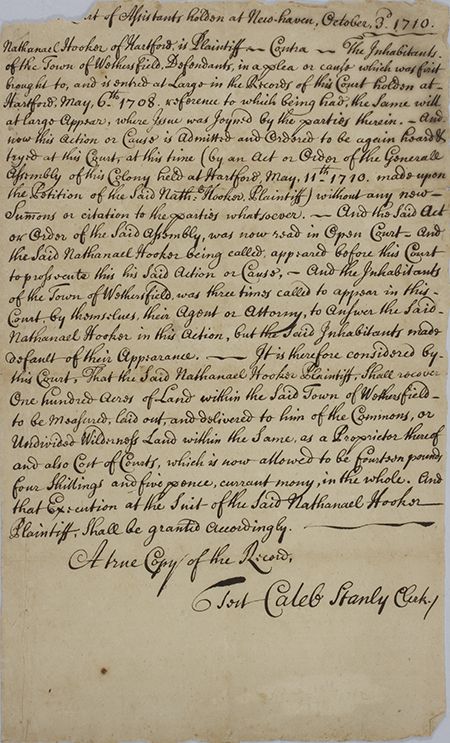 at of Assistants holden at New-haven, October. 3d. 1710.
Nathanael Hooker of Hartford, is Plaintiff — Contra — The Inhabitants
of the Town of Wethersfield, Defendants, in a plea or cause which was first
brought to, and is entred at Large in the Records of this Court holden at
Hartford, May, 6th. 1708. reference to which being had, the Same will
at large Appear, where Issue was Joyned by the parties therein. — And
now this Action or Cause is Admitted and Ordered to be again heard &
tryed at this Court, at this time (by an Act or Order of the Generall
Assembly of this Colony held at Hartford, May, 11th. 1710. made upon
the Petition of the Said Nath: Hooker, Plaintiff) without any new-
Sumons or citation to the parties whatsoever. — And the Said Act
or Order of the Said Assembly, was now read in Open Court — And
the Said Nathanael Hooker being called, appeared before this Court
to prosecute this his Said Action or Cause, — And the Inhabitants
of the Town of Wethersfield, was three times called to appear in this
Court, by themselves, their Agent or Attorny, to Answer the Said
Nathanael Hooker in this Action, but the Said Inhabitants made
default of their Appearance. — It is therefore considered by
this Court, That the Said Nathanael Hooker Plaintiff, Shall recover
One hundred Acres of Land within the Said Town of Wethersfield
to be Measured, laid out, and delivered to him of the Commons, or
Undivided Wilderness Land within the Same, as a Proprietor thereof
and also Cost of Courts, which is now allowed to be fourteen pounds
four Shillings and five pence, currant mony, in the whole. And
that Execution at the Suit of the Said Nathanael Hooker
Plaintiff, Shall be granted Accordingly. —
A true Copy of the Record,
Test Caleb Stanly Clerk.